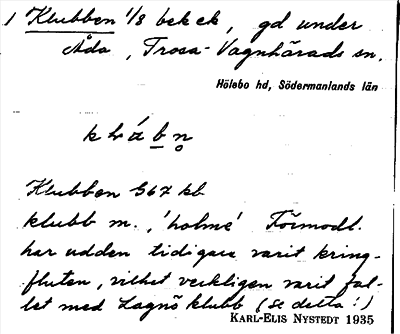 1 Klubben 1/8 bek ek, gd under
Åda, Trosa-Vagnhärads sn.
Hölebo hd, Södermanlands län
Klubben G67 kb
klubb m., 'holme' Förmodl.
har udden tidigare varit kring-
fluten, vilket verkligen varit fal-
let med Lagnö klubb (se detta!)
KARL-ELIS NYSTEDT 1935